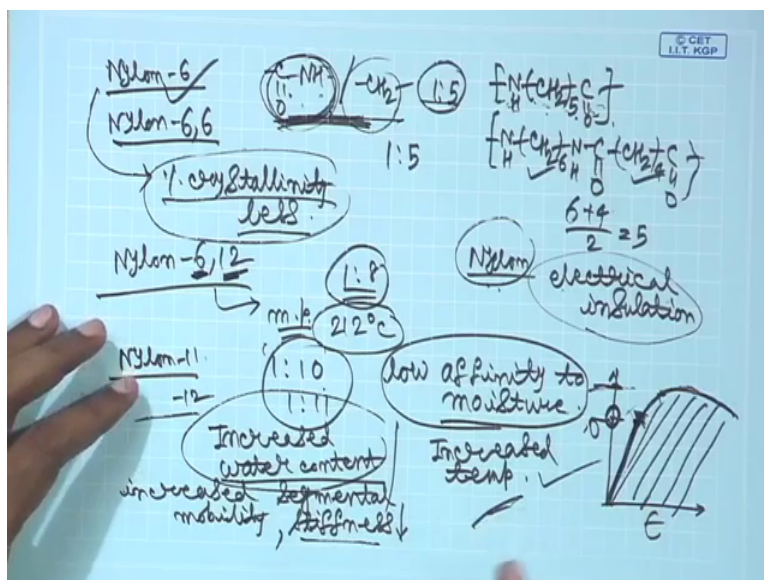 © CET
I.I.T. KGP
Nylon-6
Nylon-6,6
-C-NH-
O
-CH2-
1:5
1:5
[N-(CH2)5-C]
H O
[N-(CH2)6-N-C-(CH2)4-C]
H H O O
6+4
2 = 5
% crystallinity
less.
Nylon-6,12
1:8
m.p.
212°C
Nylon
electrical
insulation
Nylon-11
-12
1:10
1:11
low affinity to
moisture.
Increased
water content
increased
mobility,
segmental
stiffness↓
Increased
temp.
σ
ε